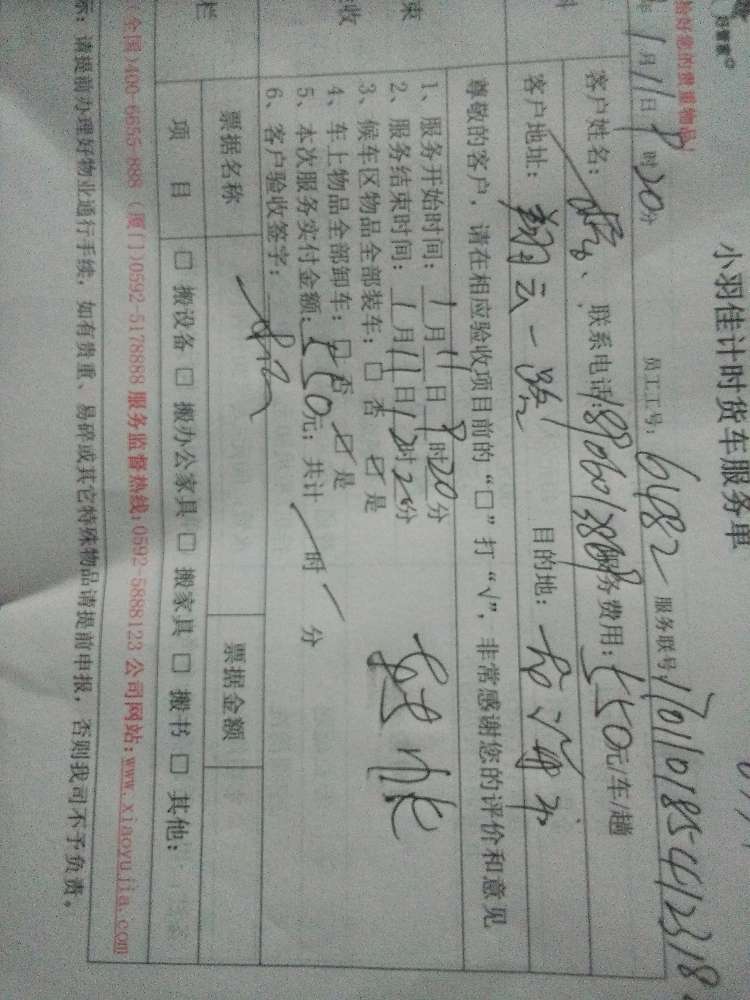 小羽佳计时货车服务单
恰好您的贵重物品!
年 1月11日 9时20分 员工工号: 6482 服务联号
客户姓名: 联系电话: 服务费用: 550元/车/趟
客户地址: 翔云一路 目的地:
尊敬的客户，请在相应验收项目前的“□”打“√”，非常感谢您的评价和意见
1、服务开始时间: 1月11日9时20分
2、服务结束时间: 1月11日12时20分
3、候车区物品全部装车: □ 否 ☑ 是
4、车上物品全部卸车: □ 否 ☑ 是
5、本次服务实付金额: 550元; 共计 / 时 / 分
6、客户验收签字:
票据名称 票据金额
项 目 □ 搬设备 □ 搬办公家具 □ 搬家具 □ 搬书 □ 其他:
(全国)400-6655-888 (厦门)0592-5178888 服务监督热线:0592-5888123 公司网站:www.xiaoyujia.com
示: 请提前办理好物业通行手续，如有贵重、易碎或其它特殊物品请提前申报，否则我司不予负责。